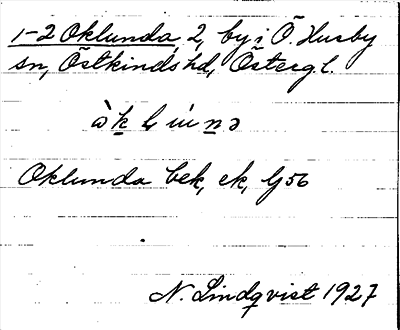 1-2 Oklunda 2, by i Ö. Husby
sn, Östkinds hd, Östergl.
Oklunda bek, ek, Gj 56
N. Lindqvist 1927